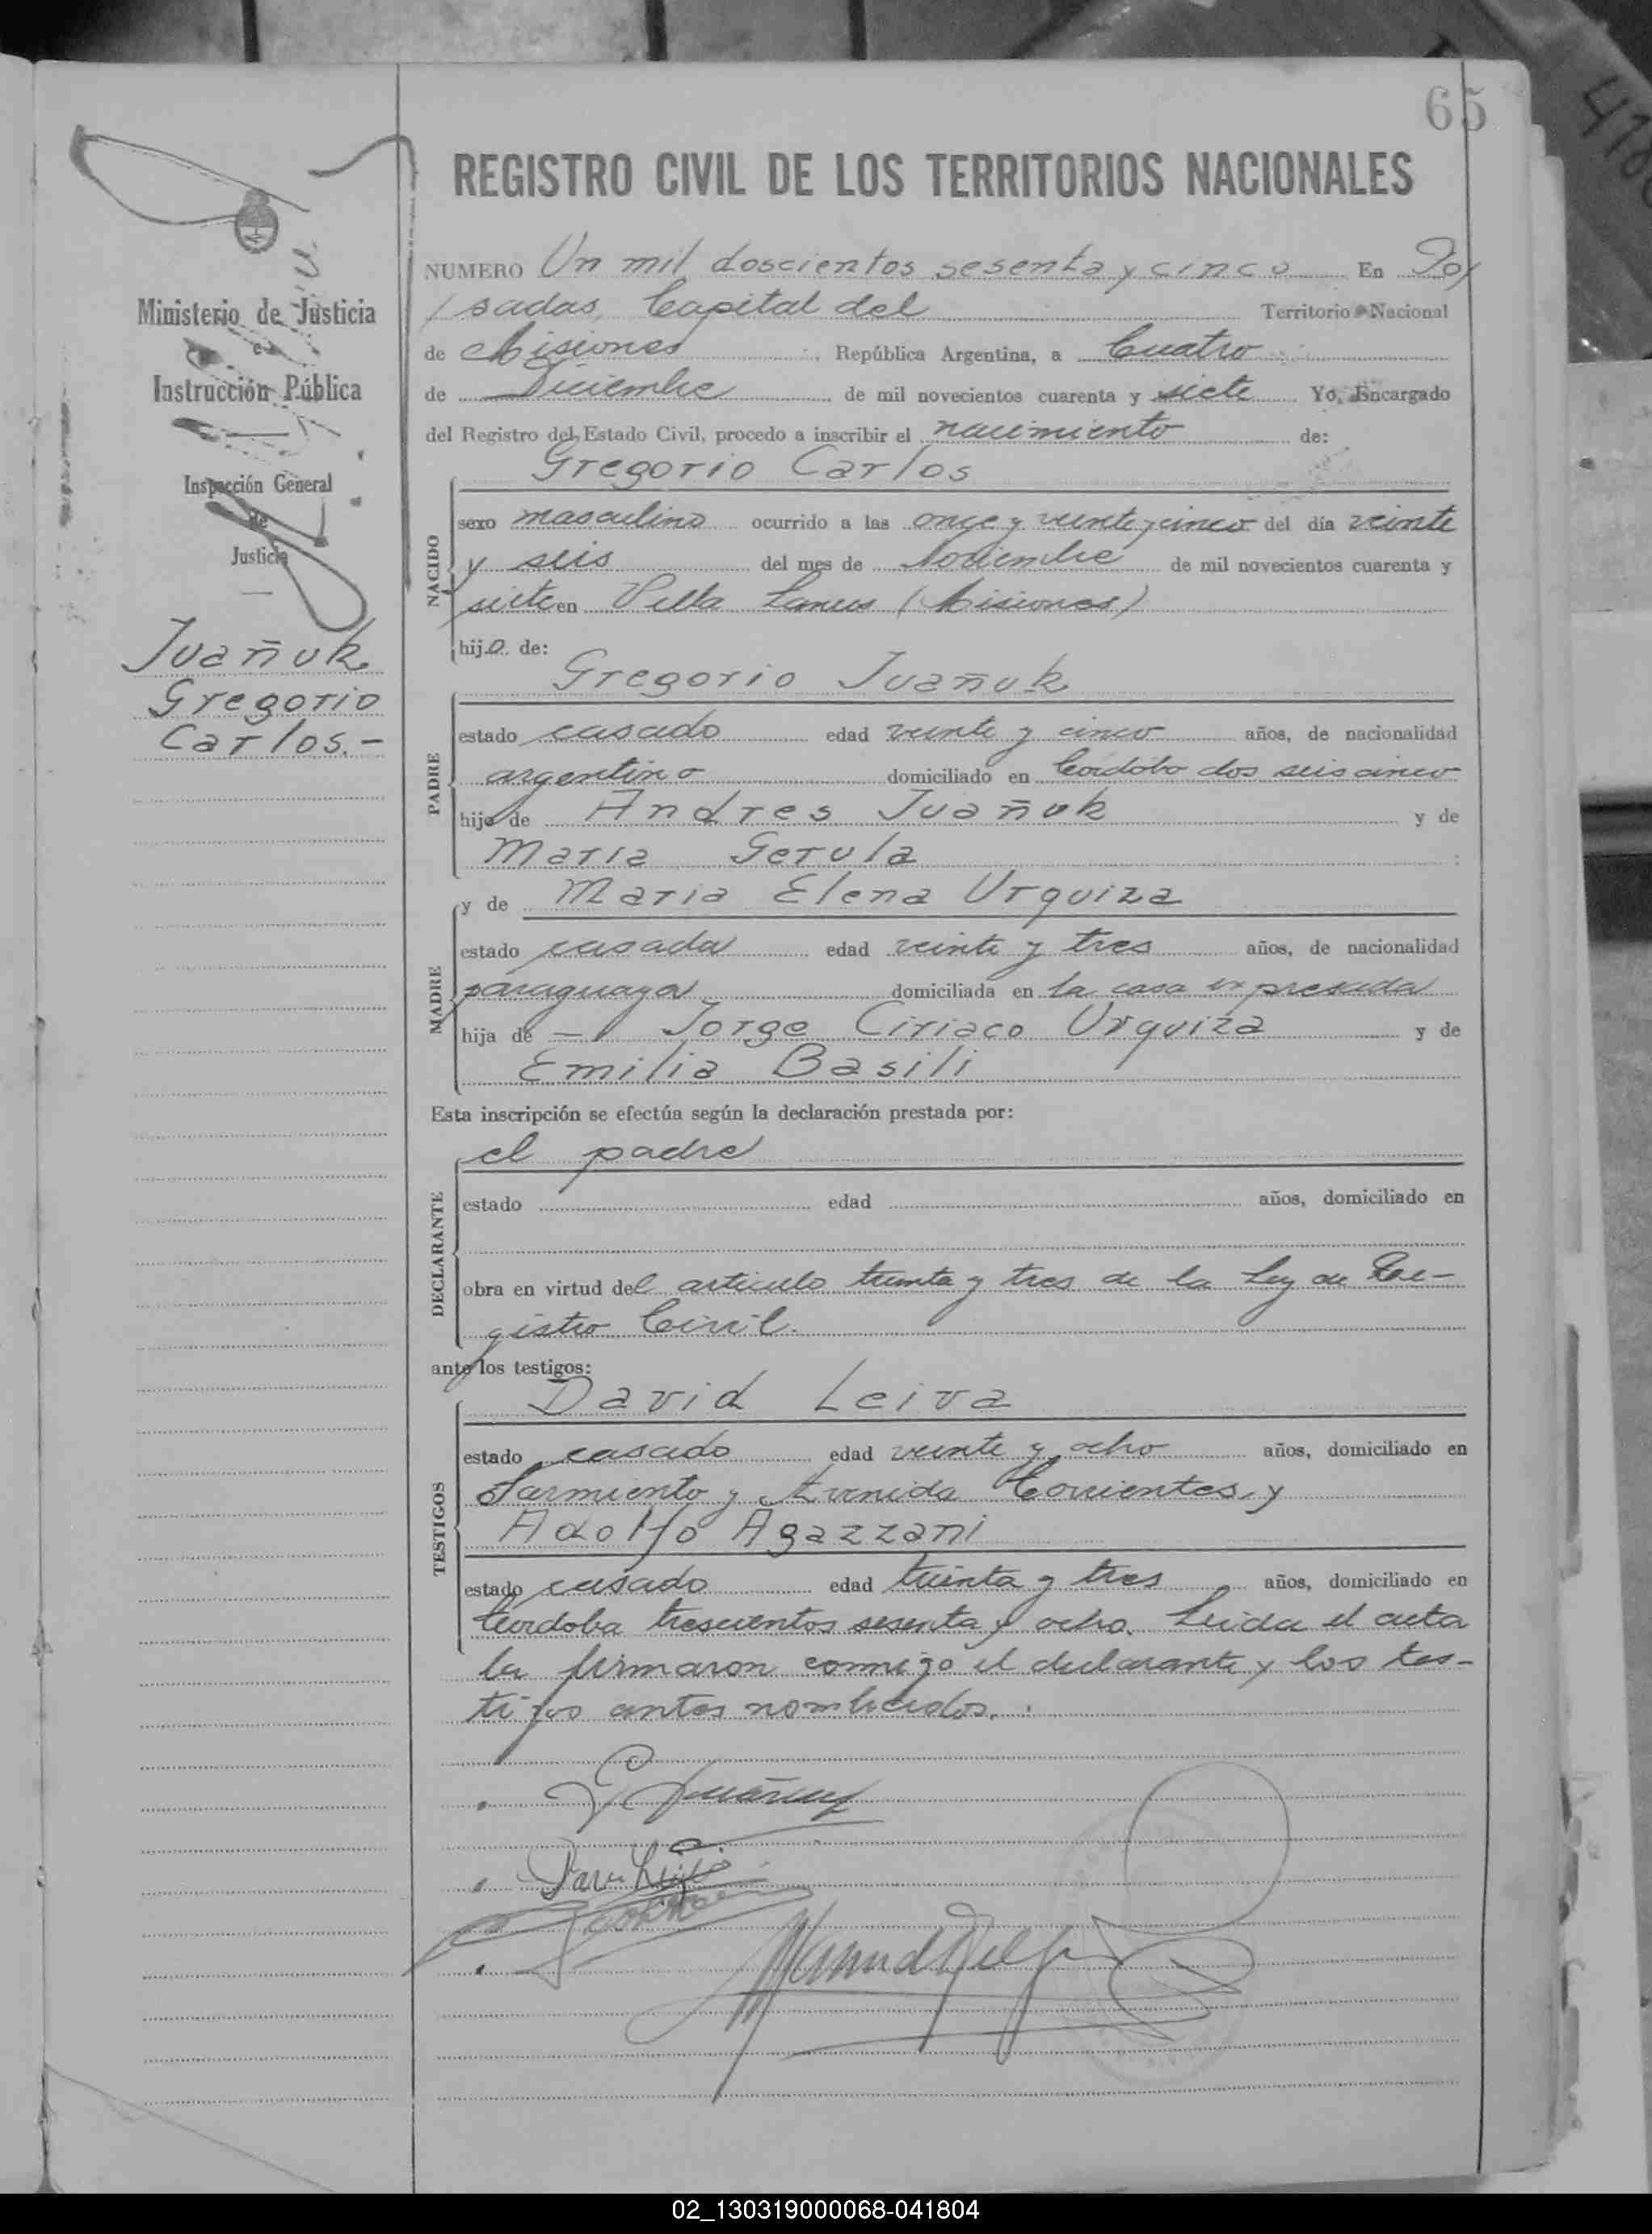 65
REGISTRO CIVIL DE LOS TERRITORIOS NACIONALES
Ministerio de Justicia
e
Instrucción Pública
Inspección General
de
Justicia
Juañuk
Gregorio
Carlos.-
NUMERO Un mil doscientos sesenta y cinco En Po/
/sadas, Capital del Territorio Nacional
de Misiones República Argentina, a Cuatro
de Diciembre de mil novecientos cuarenta y siete Yo, Encargado
del Registro del Estado Civil, procedo a inscribir el nacimiento de:
Gregorio Carlos
NACIDO
sexo masculino ocurrido a las once y veinte y cinco del día veinte
y seis del mes de Noviembre de mil novecientos cuarenta y
siete en Villa Lanus (Misiones)
hijo de:
Gregorio Juañuk
PADRE
estado casado edad veinte y cinco años, de nacionalidad
argentino domiciliado en Cordoba dos seis cinco
hijo de Andres Juañuk y de
Maria Gerula
y de Maria Elena Urquiza
MADRE
estado casada edad veinte y tres años, de nacionalidad
paraguaya domiciliada en la casa expresada
hija de - Jorge Ciriaco Urquiza y de
Emilia Basili
Esta inscripción se efectúa según la declaración prestada por:
el padre
DECLARANTE
estado edad años, domiciliado en
obra en virtud del articulo treinta y tres de la Ley de Re-
gistro Civil.
ante los testigos:
David Leiva
TESTIGOS
estado casado edad veinte y ocho años, domiciliado en
Sarmiento y Avenida Corrientes, y
Adolfo Agazzani
estado casado edad treinta y tres años, domiciliado en
Cordoba trescientos sesenta y ocho. Leida el acta
la firmaron conmigo el declarante y los tes-
tigos antes nombrados.
02_130319000068-041804